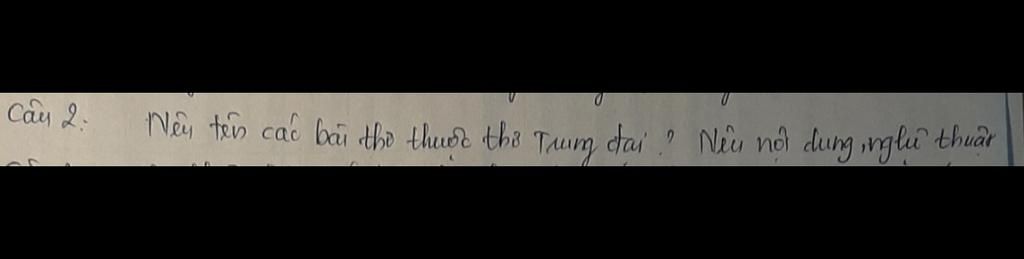 Câu 2: Nêu tên các bài thơ thuộc thơ Trung đại? Nêu nội dung, nghệ thuật